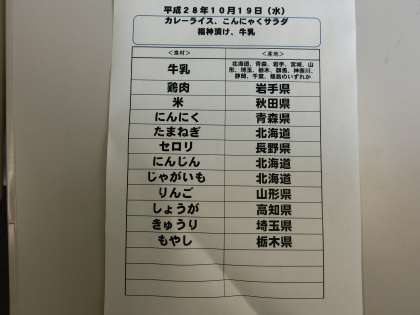 平成28年10月19日（水）
カレーライス、こんにゃくサラダ
福神漬け、牛乳
＜食材＞ ＜産地＞
牛乳 北海道、青森、岩手、宮城、山
形、埼玉、栃木、群馬、神奈川、
静岡、千葉、福島のいずれか
鶏肉 岩手県
米 秋田県
にんにく 青森県
たまねぎ 北海道
セロリ 長野県
にんじん 北海道
じゃがいも 北海道
りんご 山形県
しょうが 高知県
きゅうり 埼玉県
もやし 栃木県